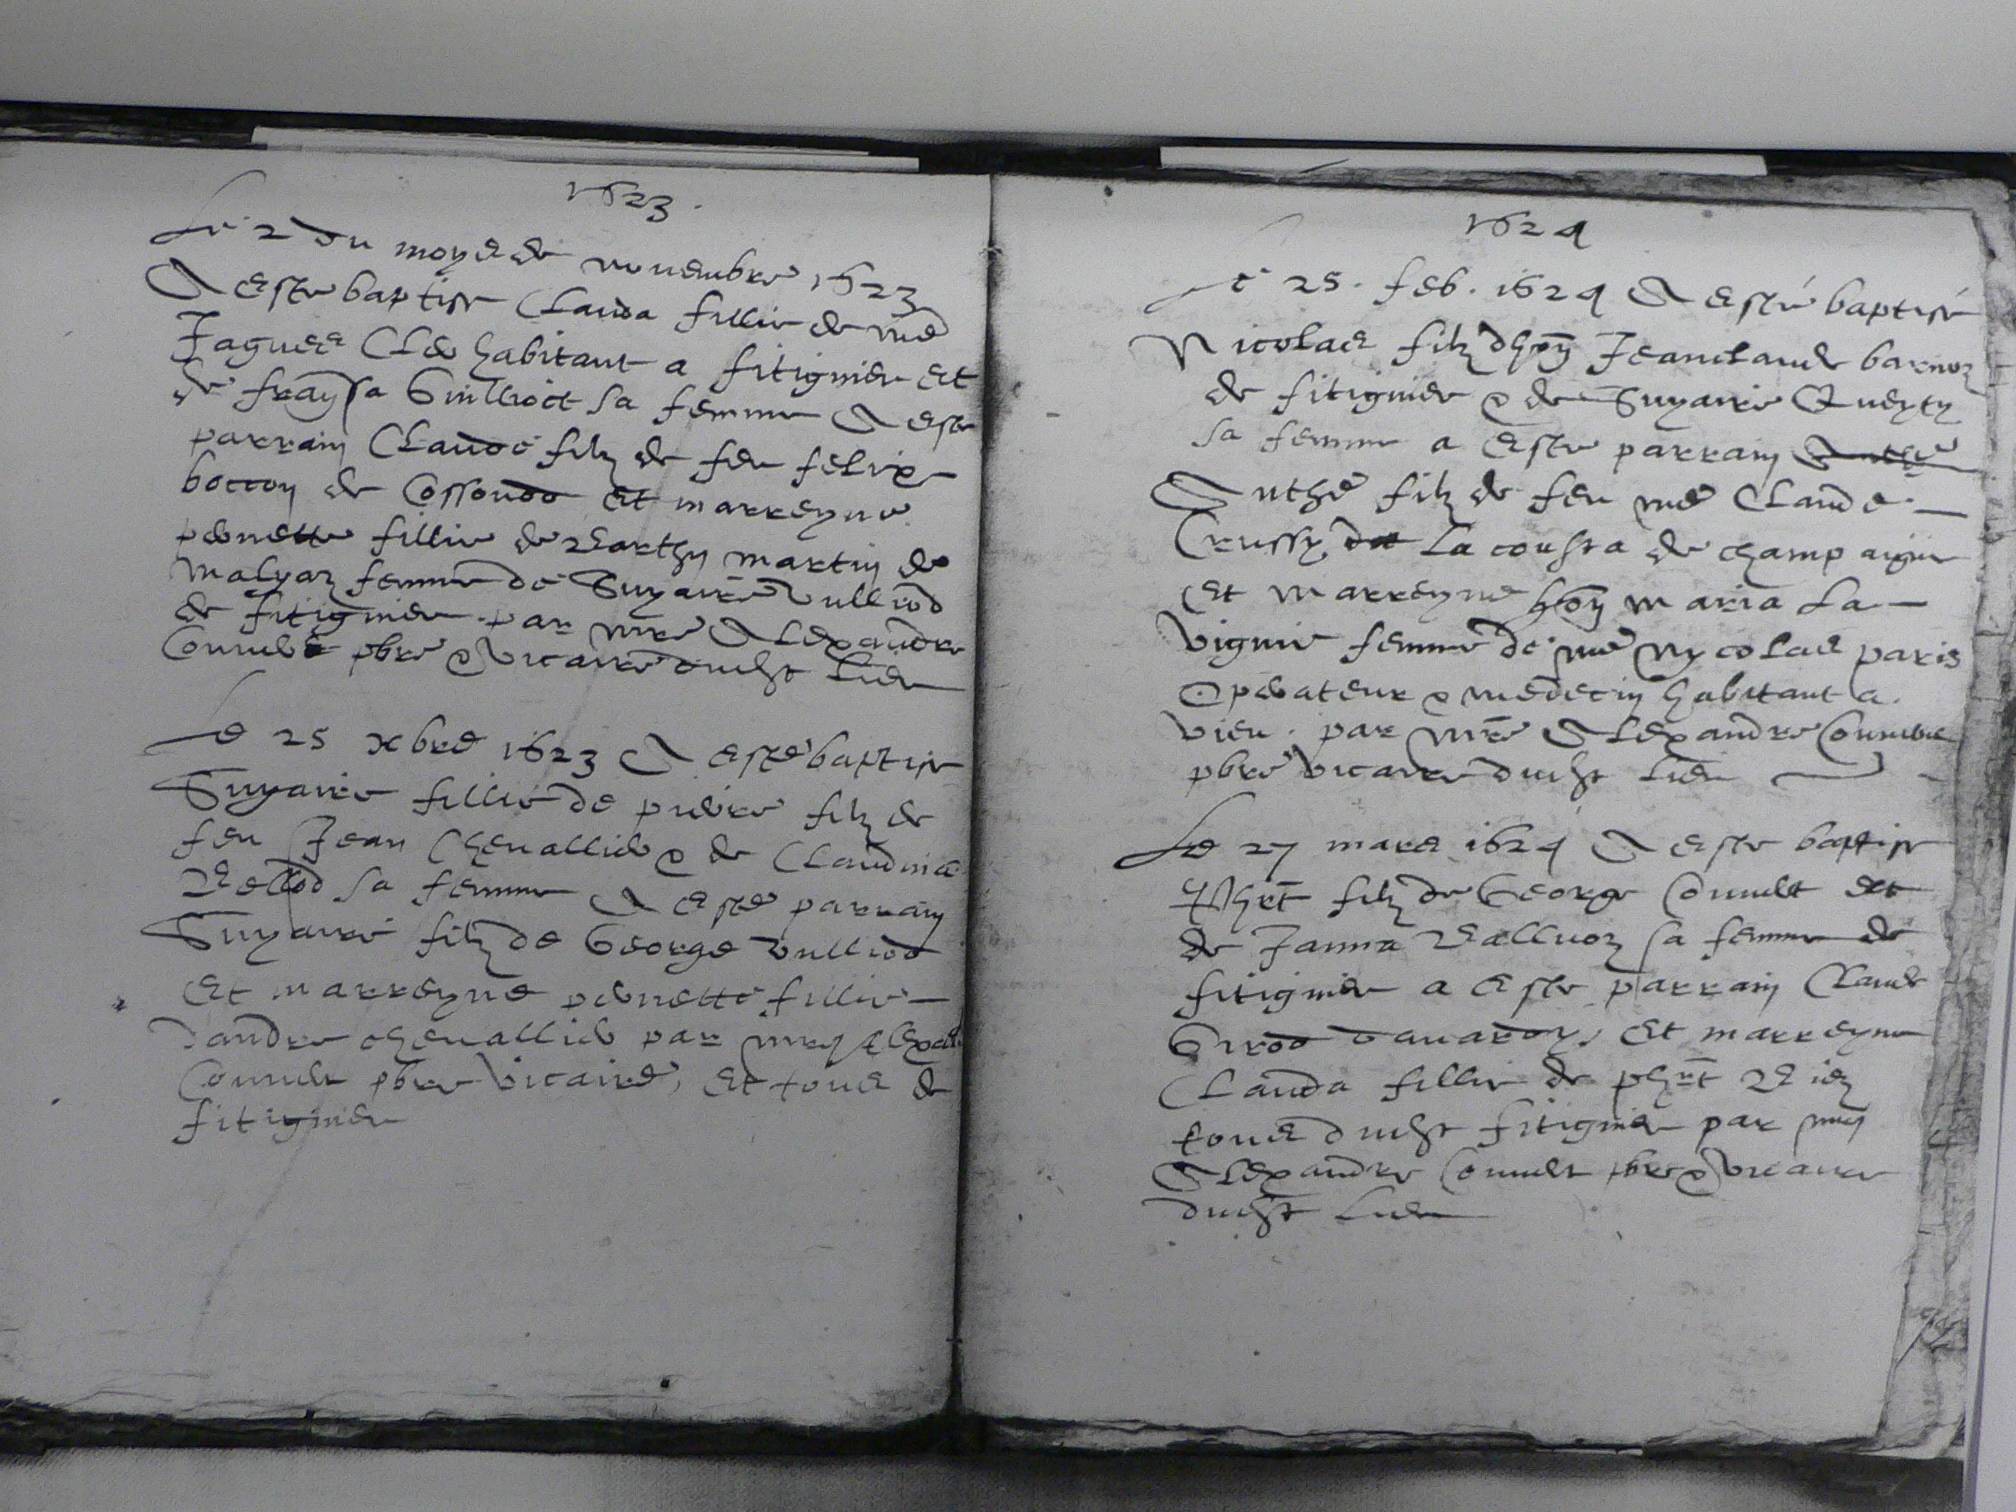 1623.
Le 2 du moys de novembre 1623
A este baptise Clauda fillie de me
Jaques habitant a fitignieu et
de sa femme A este
parrain Claude filz de feu felix
de Cossonod et marreyne
pernette fillie de Barthy martin de
femme de Suyaire Vulliod
de fitignieu par mre Alexandre
Convert pbre & vicaire dudict lieu
Le 25 xbre 1623 A este baptise
Suyaire fillie de pierre filz de
feu Jean Chevallier & de Claudina
sa femme A este parrain
Suyaire filz de George Vulliod
Et marreyne pernette fillie
dandre chevallier par
Convert pbre Vicaire, et tous de
fitignieu
1624
Le 25. feb. 1624 A esté baptisé
Nicolas filz dhon Jeanclaude
de fitignieu & de Suyaire
sa femme a este parrain Anthe
Anthe filz de feu me Claude
Crussy de la cousta de champaigne
Et marreyne hon maria La
vignie femme de me Nycolas paris
Operateur & medecin habitant a
vieu. par mre Alexandre Convert
pbre vicaire dudict lieu
Le 27 mars 1624 A este baptise
Phrt filz de George Convert et
de Janna sa femme de
fitignieu a este parrain Claude
Girod et marreyne
Clauda fillie de phrt
tous dudict fitignieu par
Alexandre Convert pbre & vicaire
dudict lieu